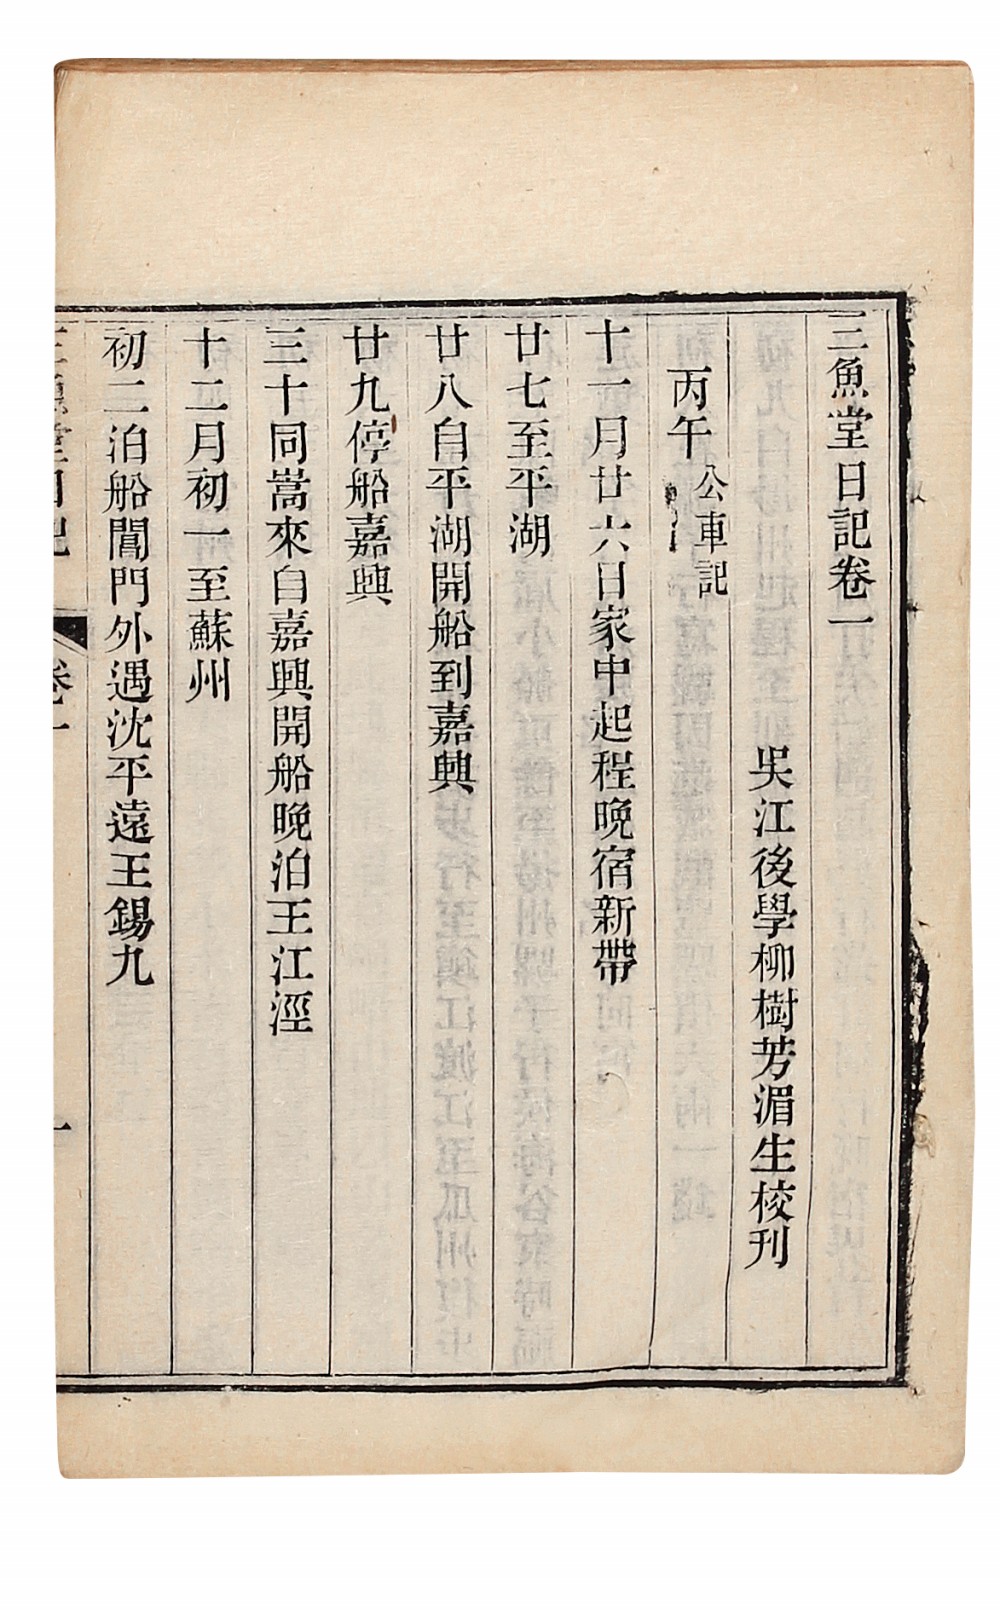 三魚堂日記卷一
吳江後學柳樹芳湄生校刊
丙午公車記
十一月廿六日家中起程晚宿新帶
廿七至平湖
廿八自平湖開船到嘉興
廿九停船嘉興
三十同嵩來自嘉興開船晚泊王江涇
十二月初一至蘇州
初二泊船閶門外遇沈平遠王錫九
三魚堂日記 卷一 一